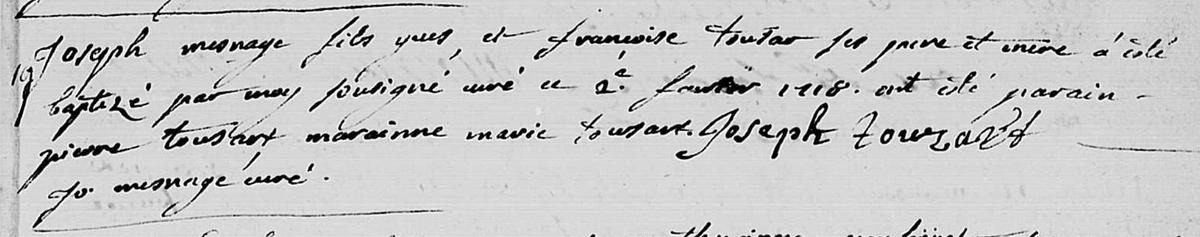 Joseph mesnage fils yves, et francoise tousar ses pere et mere á esté
baptizé par moy sousigné curé ce 2e. fevrier 1718. ont esté parain -
pierre tousart marainne marie tousart. Joseph Touzart
Jo. mesnagé curé.